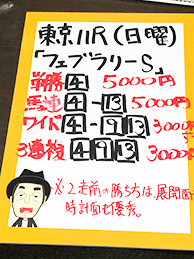 東京11R(日曜)
「フェブラリーS」
単勝 4 5000円
馬連 4-13 5000円
ワイド 4-9 13 3000円
3連複 4 9 13 3000
※・2走前の勝ち方は展開面
時計面も優秀。